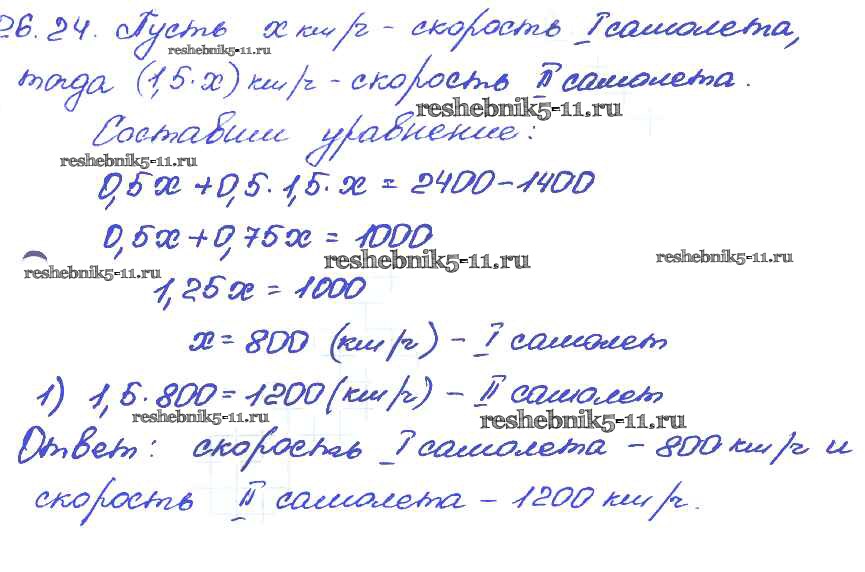 26.24. Пусть х км/ч - скорость I самолета,
reshebnik5-11.ru
тогда (1,5·х) км/ч - скорость II самолета.
reshebnik5-11.ru
Составим уравнение:
reshebnik5-11.ru
0,5х + 0,5·1,5·х = 2400-1400
0,5х + 0,75х = 1000
reshebnik5-11.ru reshebnik5-11.ru
reshebnik5-11.ru
1,25х = 1000
х = 800 (км/ч) - I самолет
1) 1,5·800 = 1200 (км/ч) - II самолет
reshebnik5-11.ru reshebnik5-11.ru
Ответ: скорость I самолета - 800 км/ч и
скорость II самолета - 1200 км/ч.